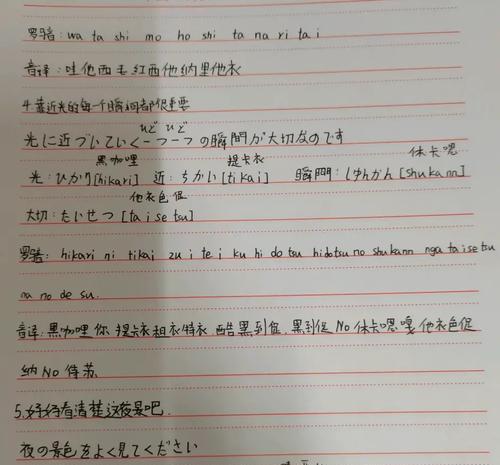 罗音: wa ta shi mo ho shi ta na ri ta i
音译: 哇他西毛红西他纳里他衣
4.靠近光的每一个瞬间都很重要
ひど ひど
光に近づいていく一つ一つの瞬間が大切なのです
黑咖哩 提卡衣 休卡嗯
光:ひかり[hikari] 近:ちかい[tikai] 瞬間:しゅんかん[shukann]
他衣色促
大切:たいせつ[taisetsu]
罗音: hikari ni tikai zu i te i ku hi do tsu hidotsu no shukann nga taisetsu
na no de su.
音译:黑咖哩你提卡衣租衣特衣酷黑到促.黑到促No休卡嗯嘎他衣色促
纳No得苏.
5.好好看清楚这夜景吧.
夜の景色をよく見てください